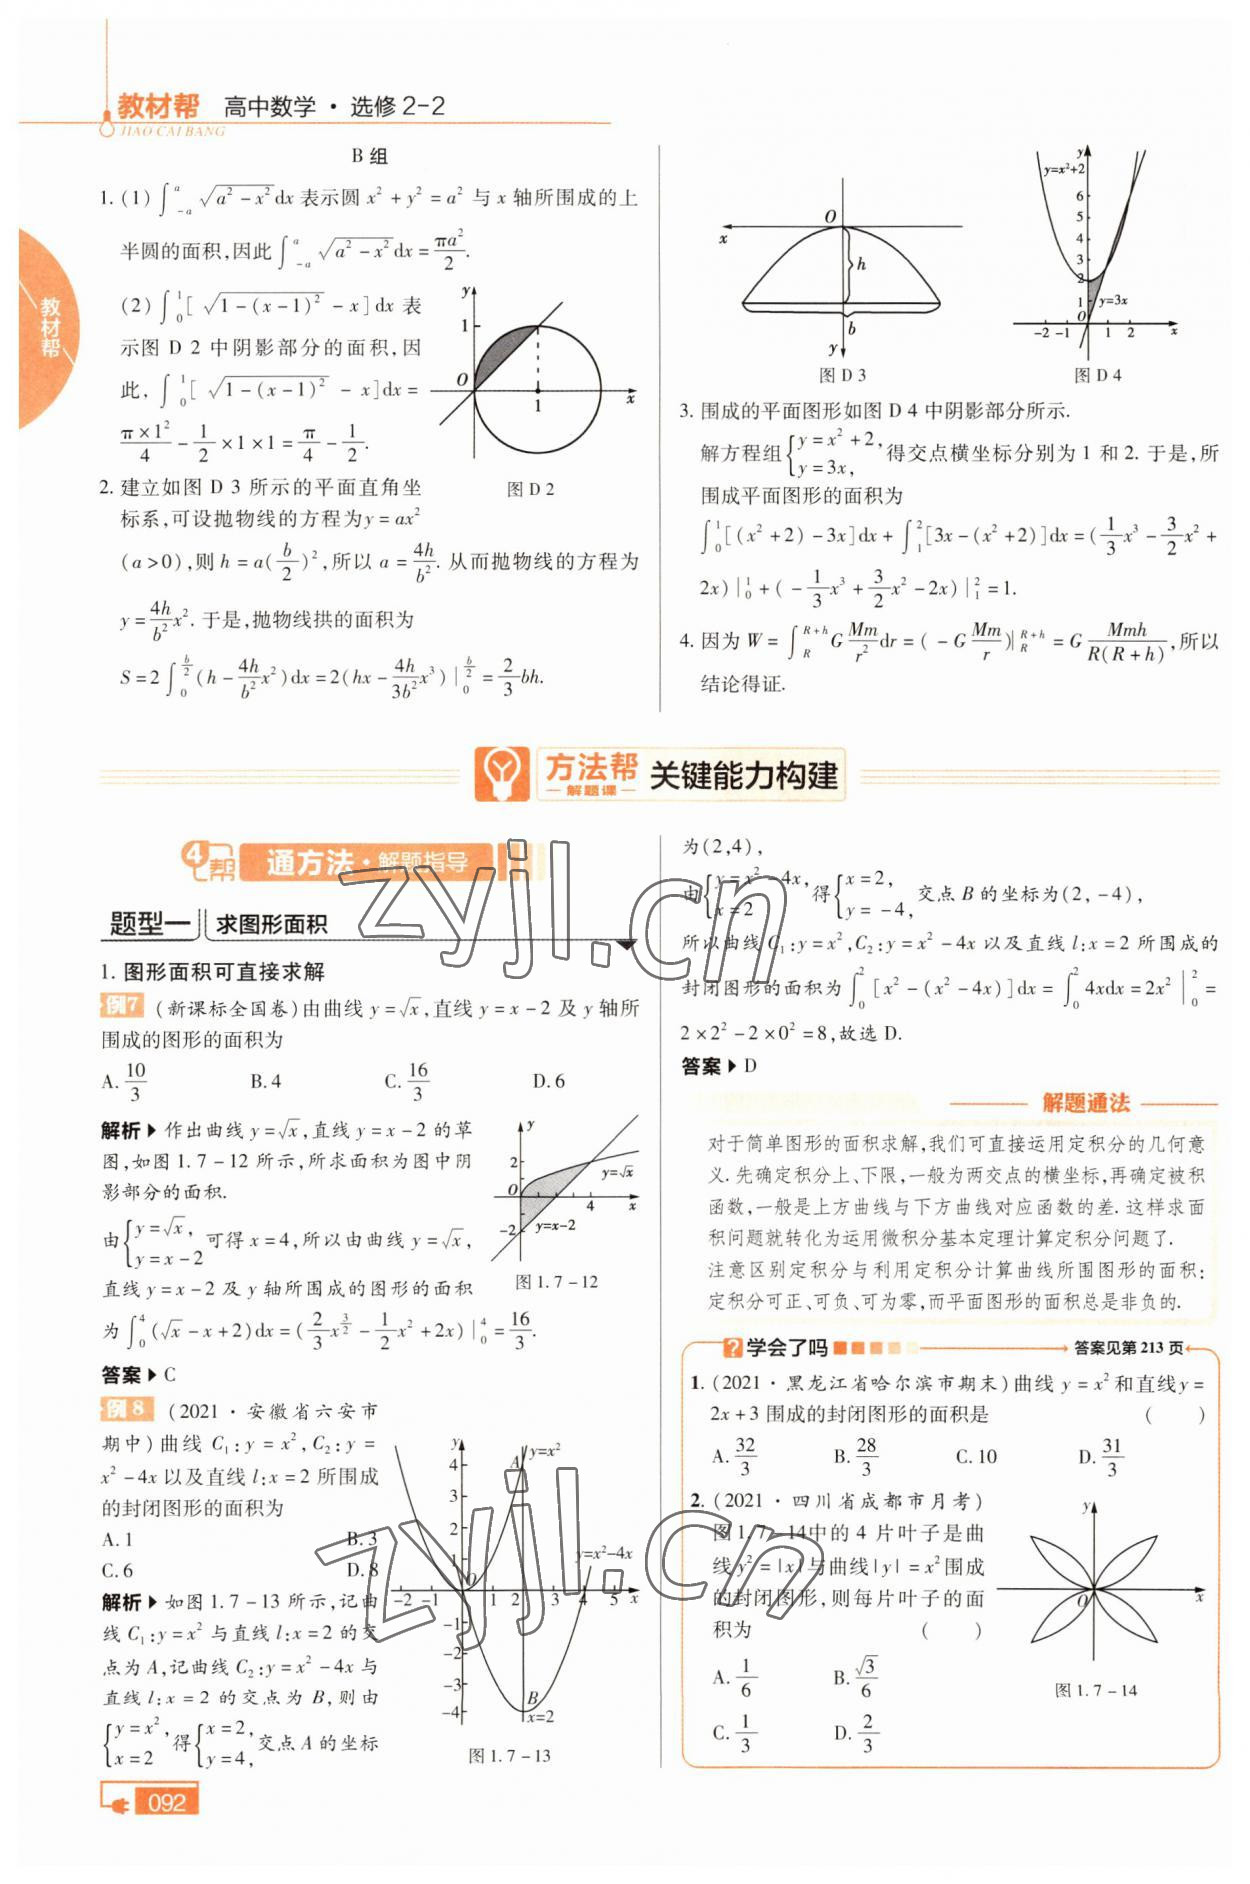 教材帮 高中数学·选修2-2
JIAO CAI BANG
教材帮
B组
1. (1) ∫_{-a}^{a} √(a²-x²)dx 表示圆 x²+y²=a² 与 x 轴所围成的上
半圆的面积,因此 ∫_{-a}^{a} √(a²-x²)dx = πa²/2.
(2) ∫_0^1 [√(1-(x-1)²) - x]dx 表
示图 D 2 中阴影部分的面积,因
此, ∫_0^1 [√(1-(x-1)²) - x]dx =
π×1²/4 - 1/2×1×1 = π/4 - 1/2.
y
1
O
1
x
图 D 2
2. 建立如图 D 3 所示的平面直角坐
标系,可设抛物线的方程为y=ax²
(a>0),则 h=a(b/2)²,所以 a=4h/b². 从而抛物线的方程为
y=4h/b² x². 于是,抛物线拱的面积为
S=2∫_0^{b/2} (h-4h/b² x²)dx=2(hx-4h/3b² x³)|_0^{b/2}=2/3 bh.
O
x
h
b
y
图 D 3
y
y=x²+2
6
5
4
3
2
1
y=3x
O
-2 -1 1 2 x
图 D 4
3. 围成的平面图形如图 D 4 中阴影部分所示.
解方程组{y=x²+2, y=3x, 得交点横坐标分别为 1 和 2. 于是,所
围成平面图形的面积为
∫_0^1 [(x²+2)-3x]dx+∫_1^2 [3x-(x²+2)]dx=(1/3 x³-3/2 x²+
2x)|_0^1+(-1/3 x³+3/2 x²-2x)|_1^2=1.
4. 因为 W=∫_R^{R+h} G Mm/r² dr=(-G Mm/r)|_R^{R+h}=G Mmh/R(R+h),所以
结论得证.
方法帮 关键能力构建
解题课
4帮 通方法·解题指导
题型一 求图形面积
1. 图形面积可直接求解
例7 (新课标全国卷)由曲线 y=√x,直线 y=x-2 及 y 轴所
围成的图形的面积为
A. 10/3 B. 4 C. 16/3 D. 6
解析▶作出曲线 y=√x,直线 y=x-2 的草
图,如图 1.7-12 所示,所求面积为图中阴
影部分的面积.
由{y=√x, y=x-2 可得 x=4,所以由曲线 y=√x,
直线 y=x-2 及 y 轴所围成的图形的面积
为∫_0^4 (√x-x+2)dx=(2/3 x^{3/2}-1/2 x²+2x)|_0^4=16/3.
y
2
y=√x
O
4
x
-2
y=x-2
图 1.7-12
答案▶C
例8 (2021·安徽省六安市
期中)曲线 C₁:y=x²,C₂:y=
x²-4x 以及直线 l:x=2 所围成
的封闭图形的面积为
A. 1 B. 3
C. 6 D. 8
解析▶如图 1.7-13 所示,记曲
线 C₁:y=x² 与直线 l:x=2 的交
点为 A,记曲线 C₂:y=x²-4x 与
直线 l:x=2 的交点为 B,则由
{y=x², x=2 得{x=2, y=4, 交点 A 的坐标
y
4
3
2
1
A
y=x²
y=x²-4x
-2 -1 O 1 2 3 4 5 x
-1
-2
-3
-4
B
x=2
图 1.7-13
为(2,4),
由{y=x²-4x, x=2 得{x=2, y=-4, 交点 B 的坐标为(2,-4),
所以曲线 C₁:y=x²,C₂:y=x²-4x 以及直线 l:x=2 所围成的
封闭图形的面积为∫_0^2 [x²-(x²-4x)]dx=∫_0^2 4xdx=2x²|_0^2=
2×2²-2×0²=8,故选 D.
答案▶D
解题通法
对于简单图形的面积求解,我们可直接运用定积分的几何意
义.先确定积分上、下限,一般为两交点的横坐标,再确定被积
函数,一般是上方曲线与下方曲线对应函数的差.这样求面
积问题就转化为运用微积分基本定理计算定积分问题了.
注意区别定积分与利用定积分计算曲线所围图形的面积:
定积分可正、可负、可为零,而平面图形的面积总是非负的.
? 学会了吗 答案见第 213 页
1. (2021·黑龙江省哈尔滨市期末)曲线 y=x²和直线y=
2x+3 围成的封闭图形的面积是 ( )
A. 32/3 B. 28/3 C. 10 D. 31/3
2. (2021·四川省成都市月考)
图 1.7-14中的 4 片叶子是曲
线 y²=|x|与曲线|y|=x²围成
的封闭图形,则每片叶子的面
积为 ( )
A. 1/6 B. √3/6
C. 1/3 D. 2/3
y
O
x
图 1.7-14
092
zyjl.cn
zyjl.cn